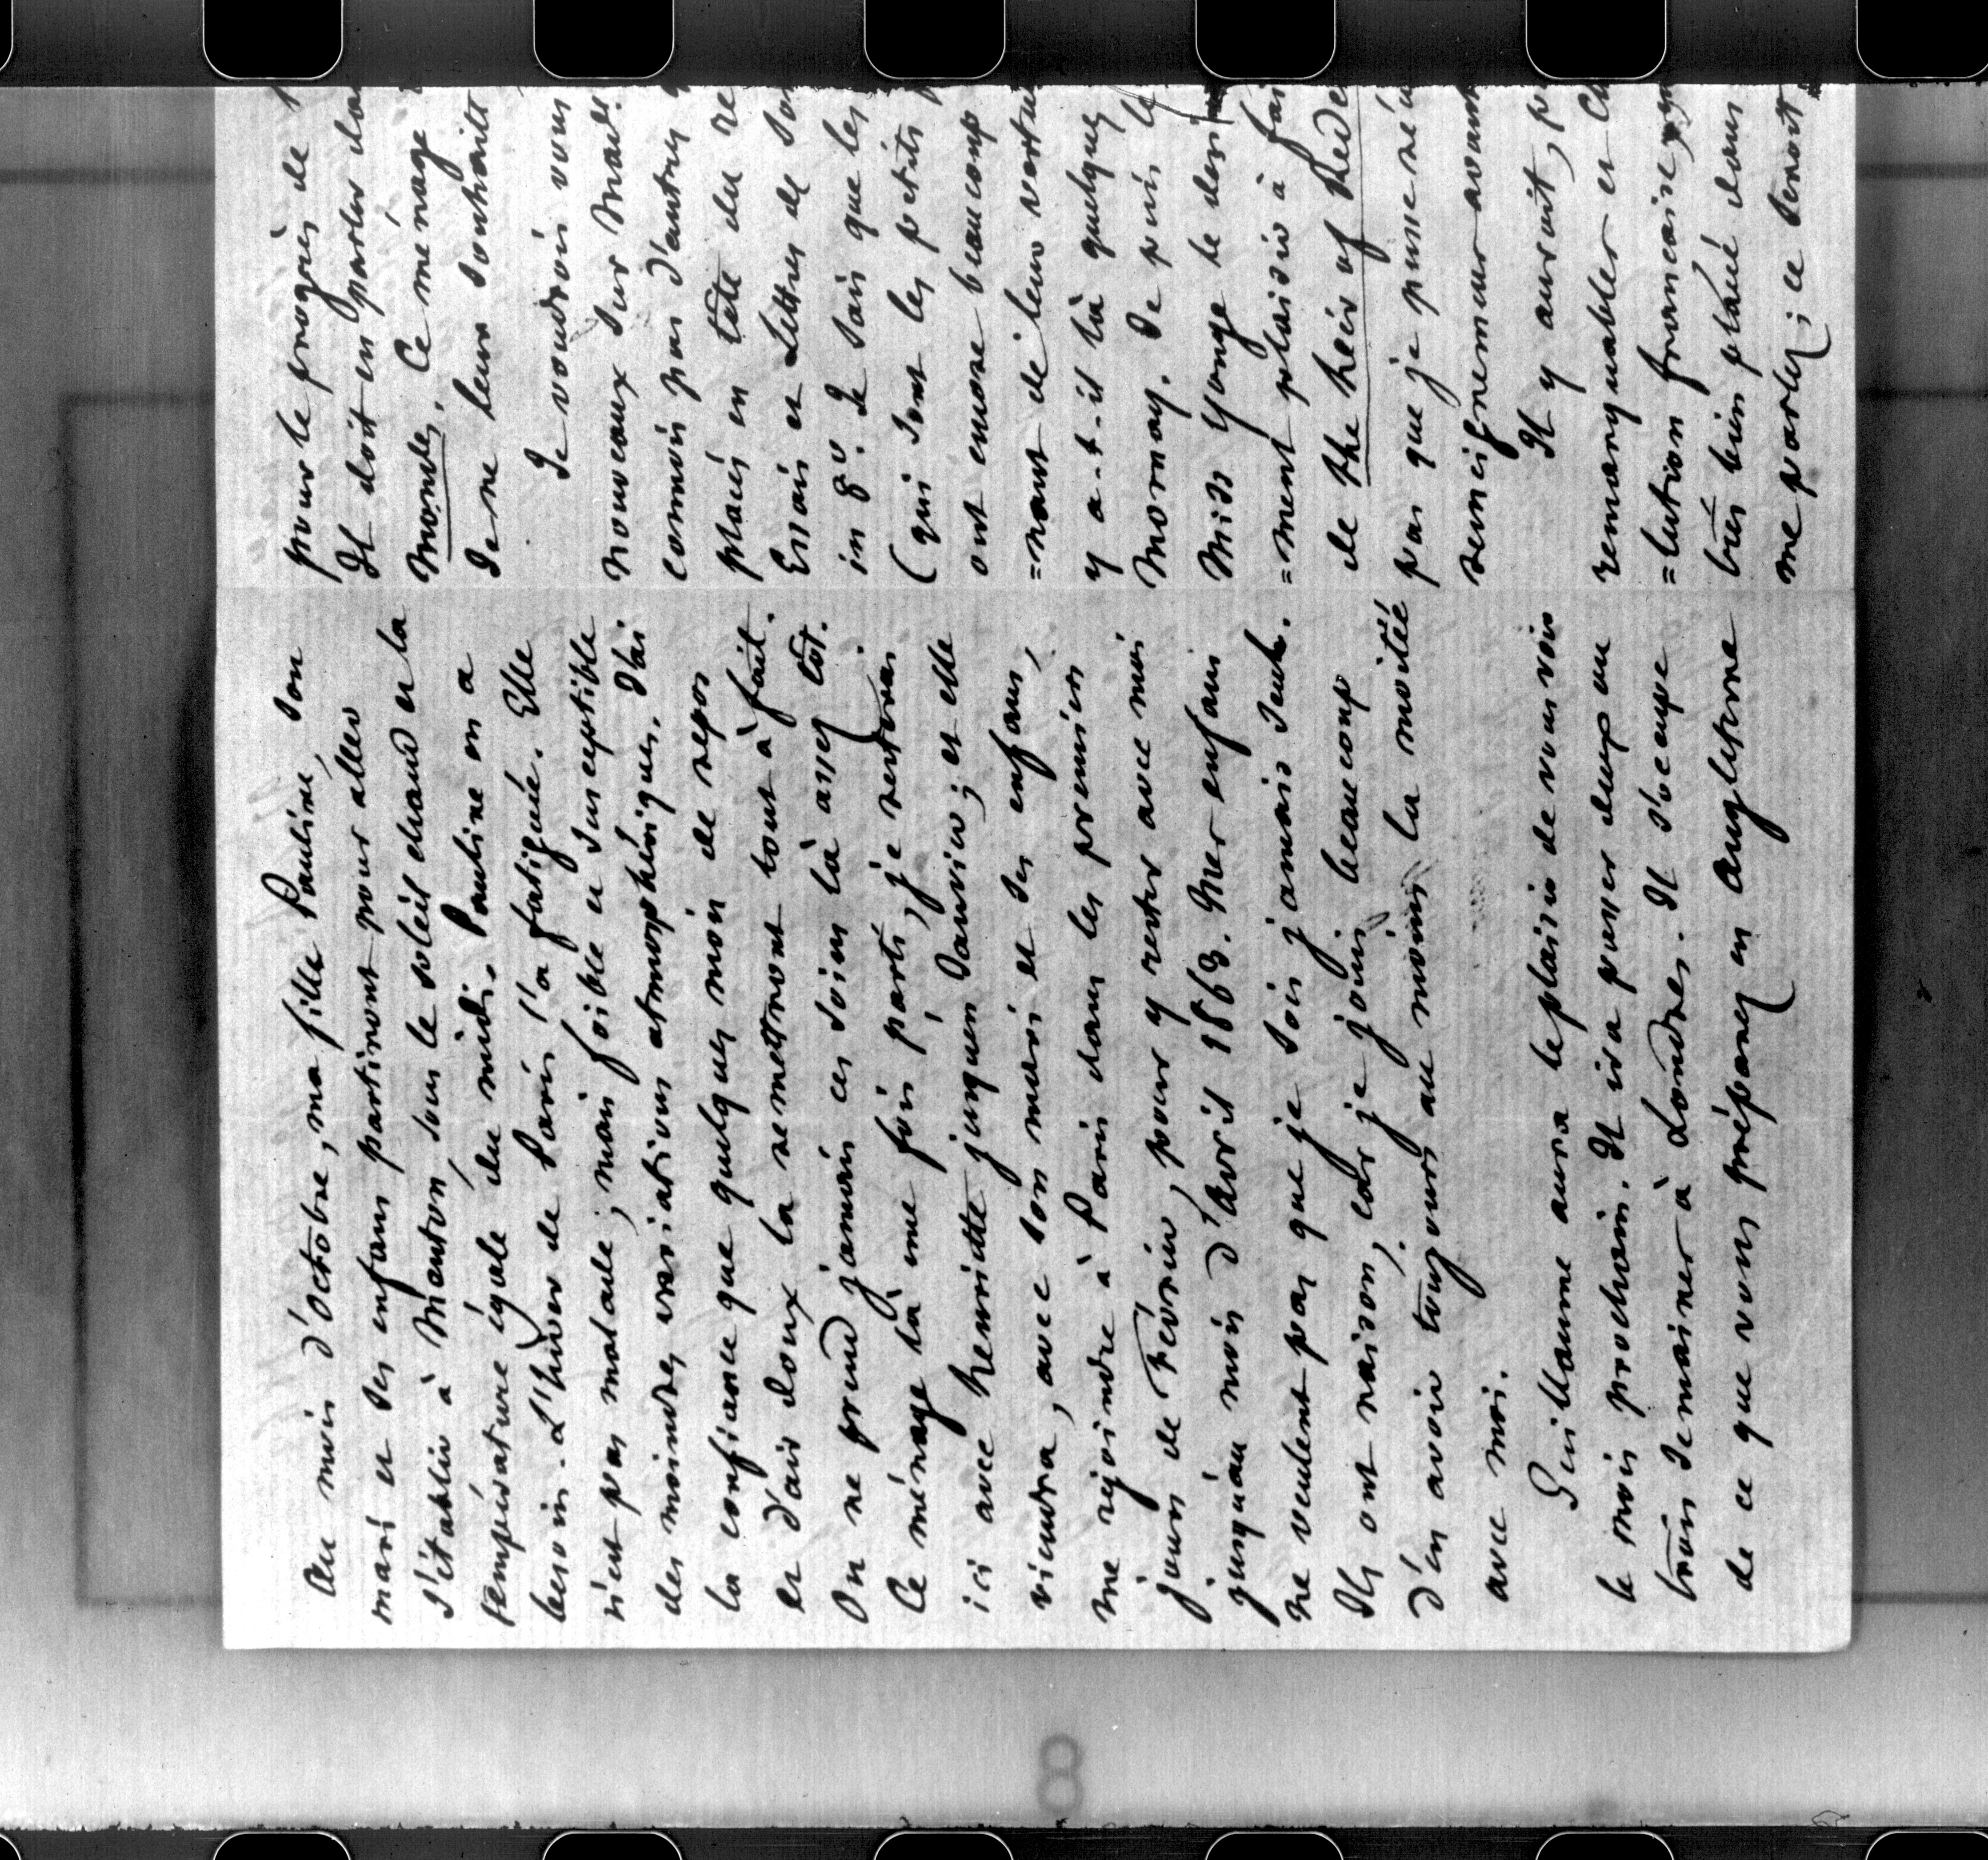 Au mois d'octobre, ma fille Pauline, son
mari et ses enfans partiront pour aller
s'établir à Menton, sous le soleil chaud et la
température égale du midi. Pauline en a
besoin. L'hiver de Paris l'a fatiguée. Elle
n'est pas malade ; mais foible et susceptible
des moindres variations atmosphériques. J'ai
la confiance que quelques mois de repos
et d'air doux la remettront tout à fait.
On ne prend jamais ces soins là assez tôt.
Ce ménage là une fois parti, je resterai
ici avec henriette jusquen Janvier ; et elle
viendra, avec son mari et ses enfans,
me rejoindre à Paris dans les premiers
jours de Février, pour y rester avec moi
jusqu'au mois d'avril 1863. Mes enfans
ne veulent pas que je sois jamais seul.
Ils ont raison, car je jouis beaucoup
d'en avoir toujours au moins la moitié
avec moi.
Guillaume aura le plaisir de vous voir
le mois prochain. Il ira passer deux ou
trois semaines à Londres. Il s'occupe
de ce que vous préparez en Angleterre
pour le progrès de
Il doit en parler dan
Mondes. Ce ménage
Je ne leur souhaite
Je voudrois vous
nouveaux sur Mad.
connois pas d'autres
placés en tête du re
Essais et Lettres de
in 8°. Je sais que les
(qui sont les petits
ont encore beaucoup
=nant de leur vertu
y a-t-il là quelques
Mornay. Je puis le
Miss Yonge le desi
=ment plaisir à fai
de the heir of Redc
pas que je puisse réu
renseignemens avant
Il y auroit, pu
remarquables et
=lution française,
très bien placé dans
me parlez ; ce seroit